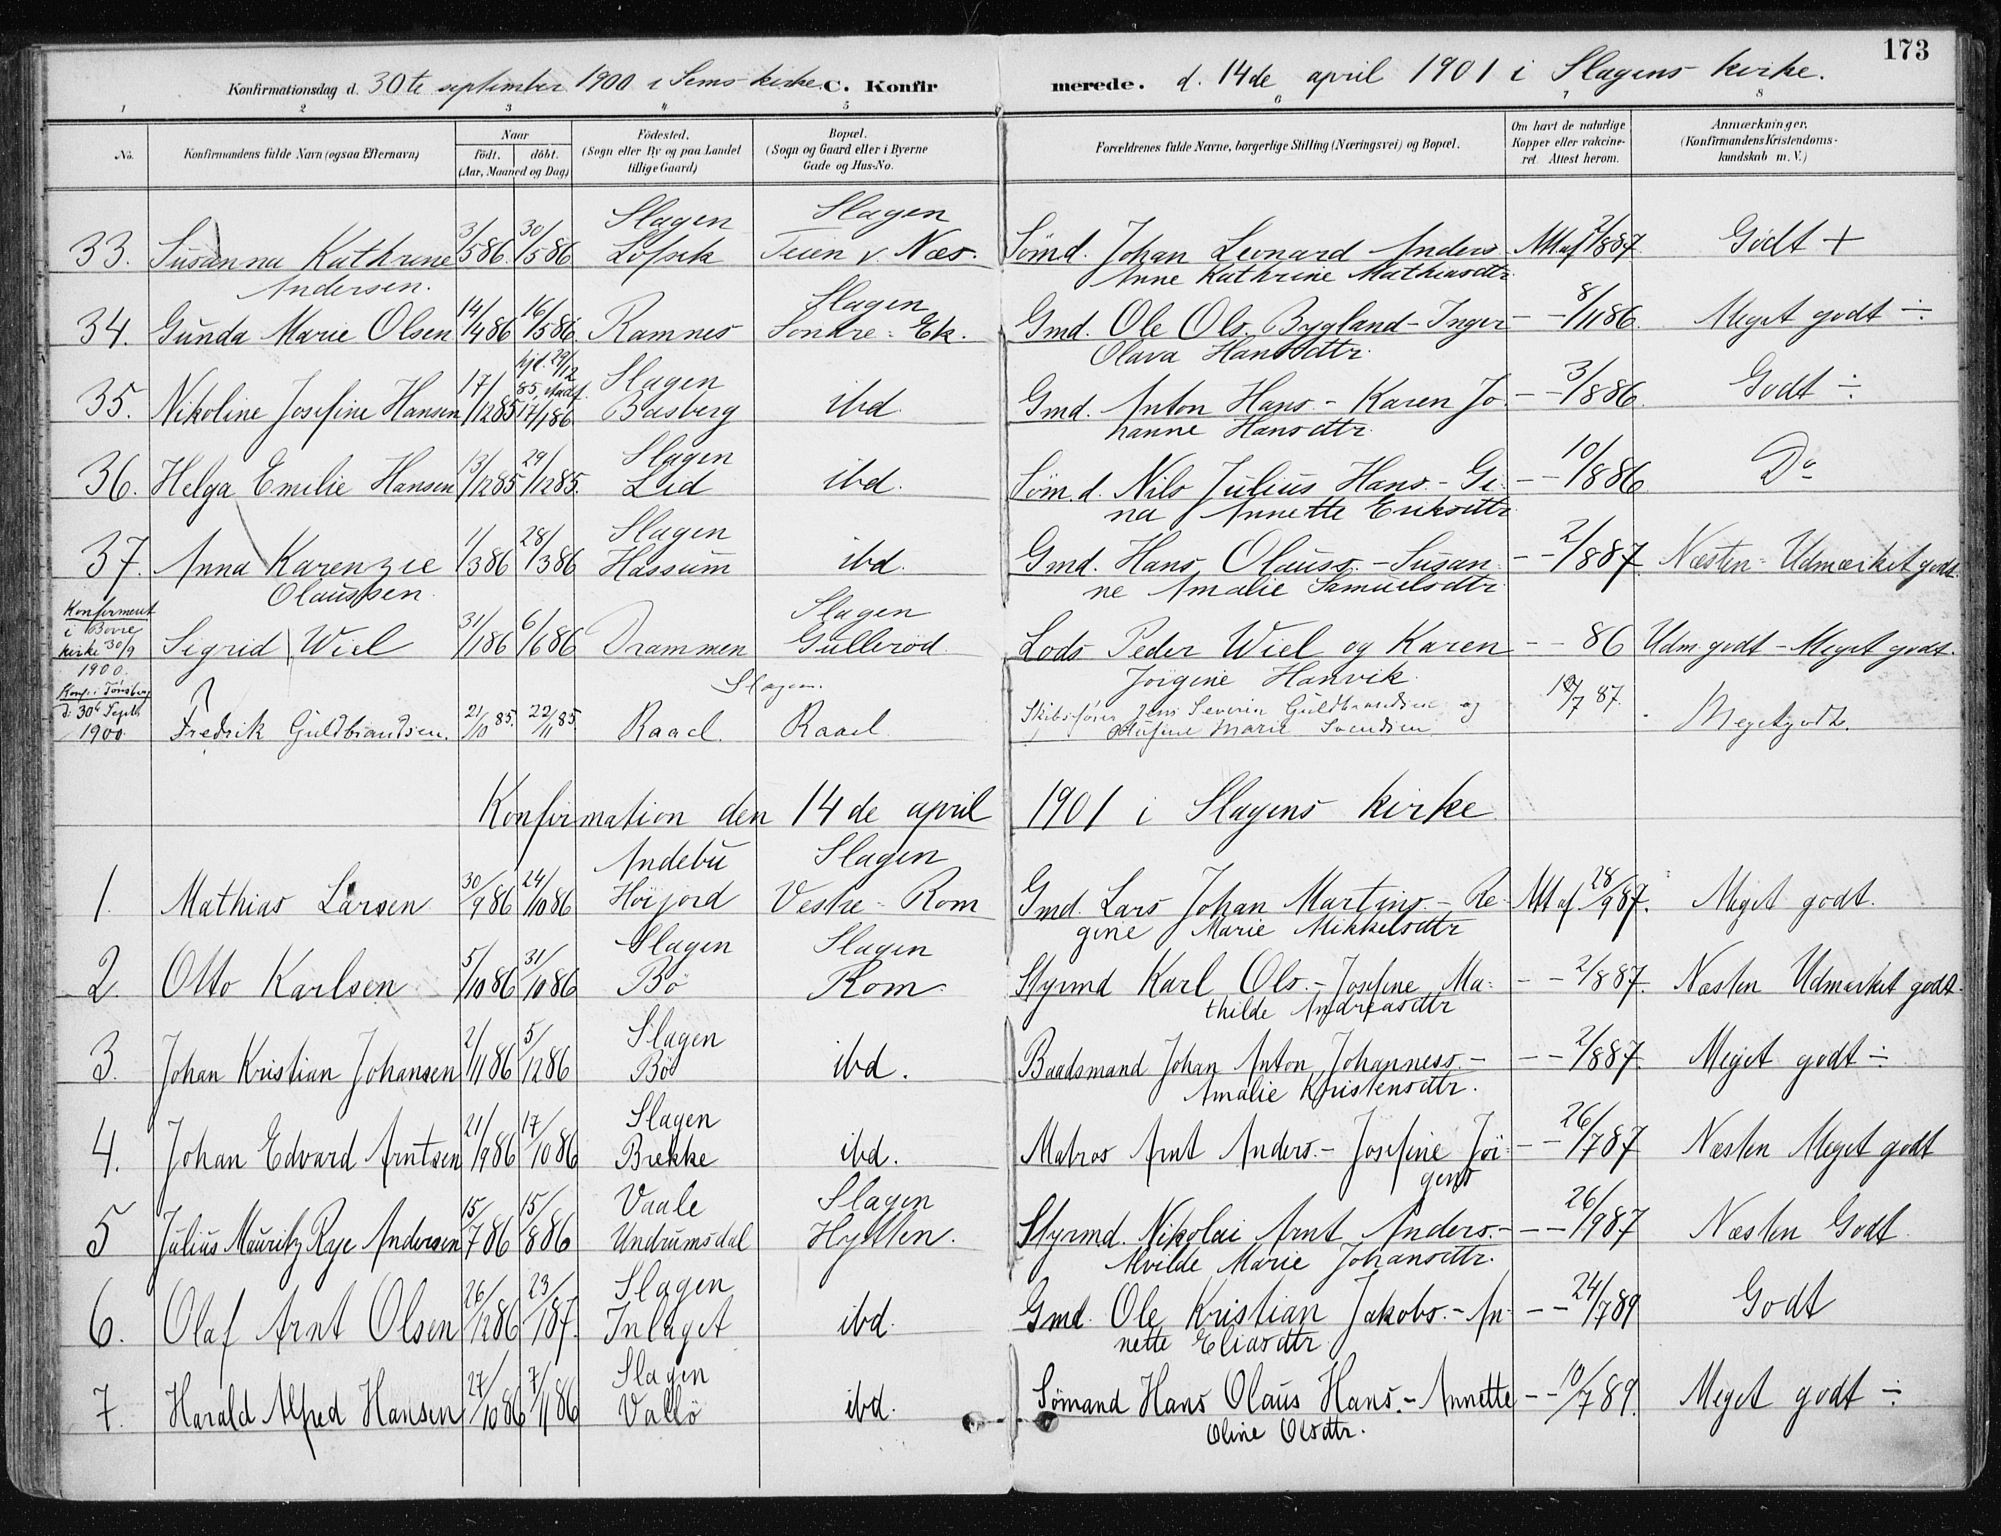 173
Konfirmationsdag d. 30te september 1900 i Sems kirke. C. Konfir merede. d. 14de april 1901 i Slagens kirke.
1 2 3 4 5 6 7 8
No. Konfirmandens fulde Navn (ogsaa Efternavn) Naar Födested. Bopæl. Forældrenes fulde Navne, borgerlige Stilling (Næringsvei) og Bopæl. Om havt de naturlige Anmærkninger.
födt. döbt. (Sogn eller By og paa Landet (Sogn og Gaard eller i Byerne Kopper eller vakcine- (Konfirmandens Kristendoms-
(Aar, Maaned og Dag) tillige Gaard) Gade og Hus-No. ret. Attest herom. kundskab m. V.)
Slagen Slagen
33. Susanna Kathrine 3/5 86. 30/5 86 Lofsek Teien v. Næs. Sömd. Johan Leonard Anders. Att af 2/8 87. Godt +
Andersen. Anne Kathrine Mathiasdtr.
Slagen
34. Gunda Marie Olsen 14/4 86 16/5 86. Ramnes Söndre-Ek. Gmd. Ole Ols. Bygland - Inger - - 8/11 86. Meget godt ÷
Olava Hansdtr.
hjd. 29/12 Slagen
35. Nikoline Josefine Hansen 17/12 85 85, stadf. 17/1 86. Basberg ibd. Gmd. Anton Hans. - Karen Jo- - - 3/8 86. Godt ÷
hanne Hansdtr.
Slagen
36. Helga Emilie Hansen 13/12 85 29/12 85. Lid ibd. Sömd. Nils Julius Hans. - Gi- - - 10/8 86. Do
na Annette Eriksdtr.
Slagen
37. Anna Karenzie 1/3 86 28/3 86 Hassum ibd. Gmd. Hans Olauss. - Susan- - - 2/8 87. Næsten Udmærket godt.
Olaussen. ne Amalie Samuelsdtr.
Konfirmeret Slagen
i Borre Sigrid Wiel 31/1 86 6/6 86 Drammen Gulleröd. Lods Peder Wiel og Karen - - 86 Udm. godt - Meget godt.
kirke 30/9
1900. Jorgine Hanvik.
Konf. i Tönsberg Slagen.
d. 30te Septb. Fredrik Guldbrandsen. 21/10 85. 22/11 85. Raael. Raael. Skibsförer Jens Severin Guldbrandsen og 19/7 87. Megetgodt.
1900. Marie Svendsen
Konfirmation den 14de april 1901 i Slagens kirke
Andebu Slagen
1. Mathias Larsen 30/9 86 24/10 86 Höijord Veste-Rom Gmd. Lars Johan Martins. - Re- Att af 28/9 87. Meget godt.
gine Marie Mikkelsdtr
Slagen Slagen
2. Otto Karlsen 5/10 86 31/10 86 Bö Rom Styrmd Karl Ols. - Josefine Ma- - - 2/8 87. Næsten Udmærket godt.
thilde Andreasdtr
Slagen
3. Johan Kristian Johansen 2/11 86 5/12 86 Bö ibd. Baadsmand Johan Anton Johanness. - - - 2/8 87. Meget godt ÷
Amalie Kristensdtr.
Slagen
4. Johan Edvard Arntsen 21/9 86 17/10 86 Brekke ibd. Matros Arnt Anders. - Josefine Jör- - - 26/7 87 Næsten Meget godt
gens
Vaale Slagen
5 Julius Mauritz Rye Andersen 15/7 86 15/8 86 Undrumsdal Hytten. Styrmd. Nikolai Arnt Anders. - - - 26/9 87 Næsten Godt
Alvilde Marie Johansdtr.
Slagen
6. Olaf Arnt Olsen 26/12 86 23/1 87. Inlaget ibd. Gmd. Ole Kristian Jakobs. - An- - - 24/7 89 Godt
nette Eliasdtr.
Slagen
7. Harald Alfred Hansen 27/10 86 7/11 86 Vallö ibd. Sömand Hans Olaus Hans. - Annette - - 10/7 89. Meget godt ÷
Oline Olsdtr.